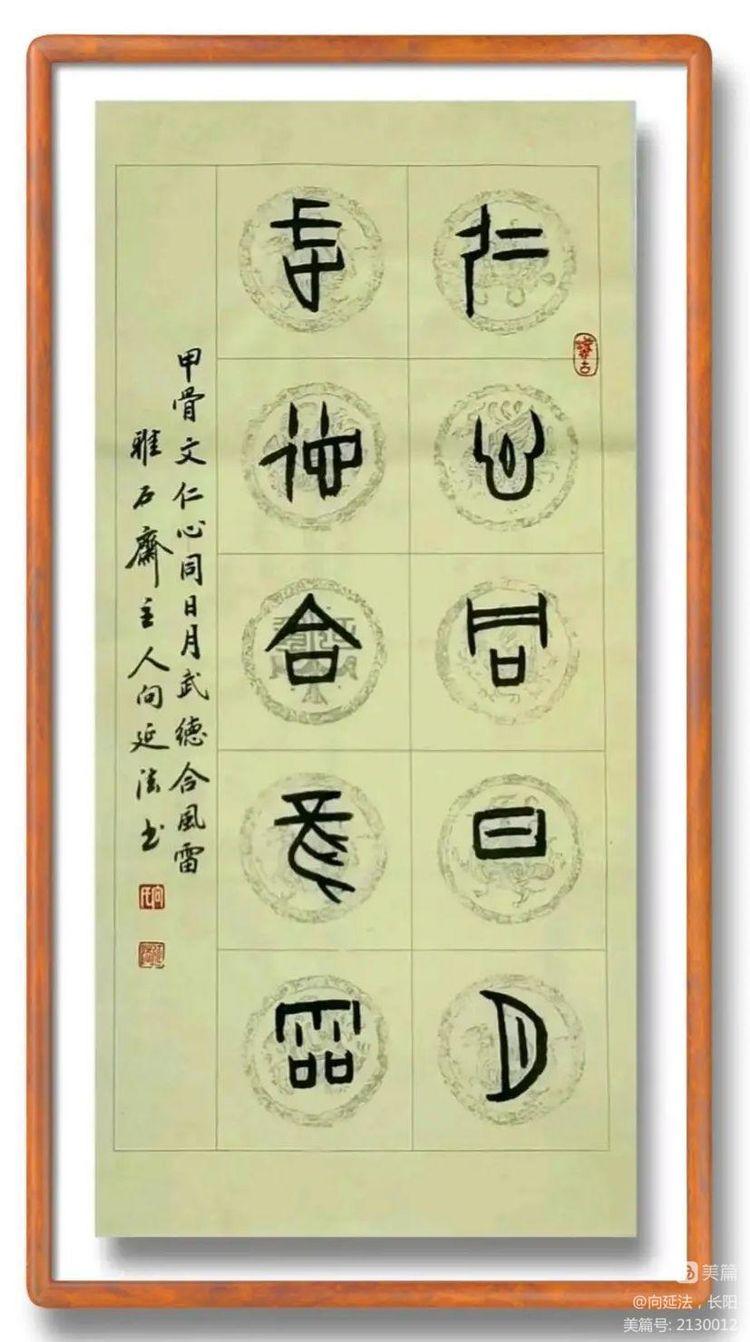 仁心同日月
武德合風雷
甲骨文仁心同日月武德合風雷
雅石齋主人向延法书
美篇
@向延法，长阳
美篇号: 2130012